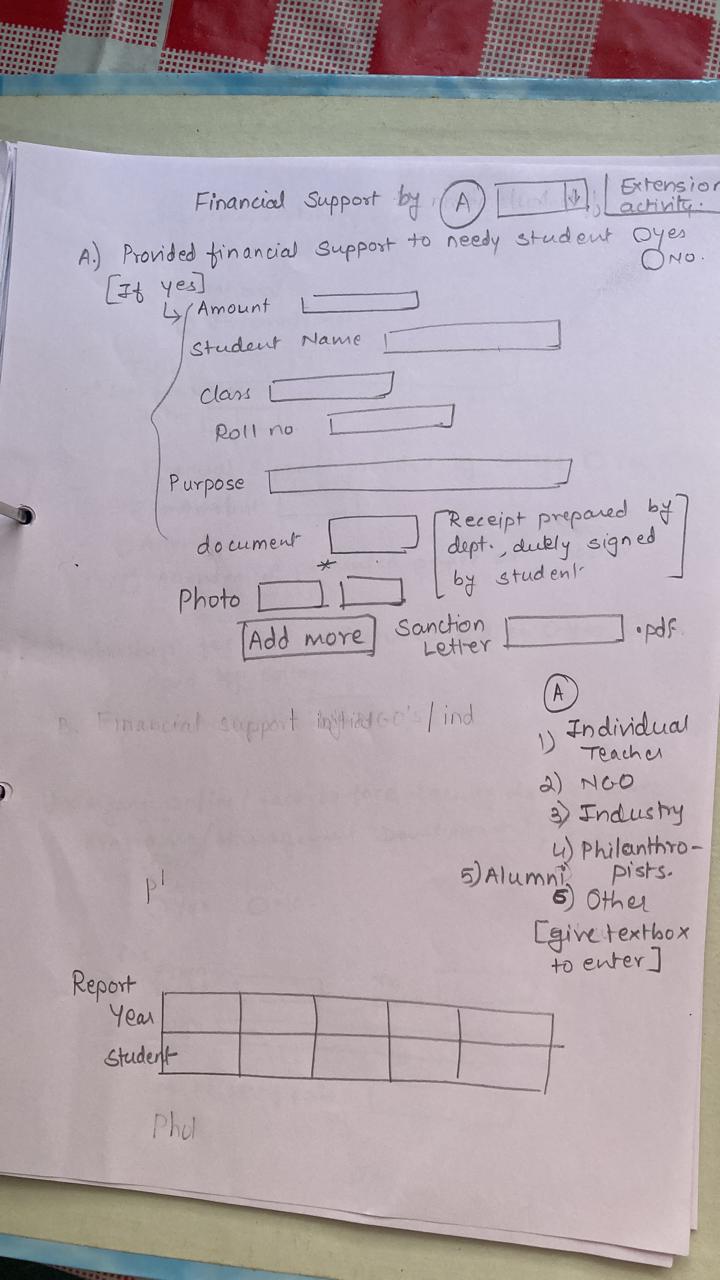 Financial Support by (A) Extension
activity.
A.) Provided financial support to needy student Oyes
O NO.
[If yes]
↳ Amount
Student Name
Class
Roll no
Purpose
document [Receipt prepared by
dept., dukly signed
by student]
*
Photo
Add more Sanction
Letter .pdf
(A)
B. Financial support NGO's/ind
1) Individual
Teacher
2) NGO
3) Industry
4) Philanthro-
pists.
5) Alumni
6) Other
[give textbox
to enter]
Report
Year
Student
Phot